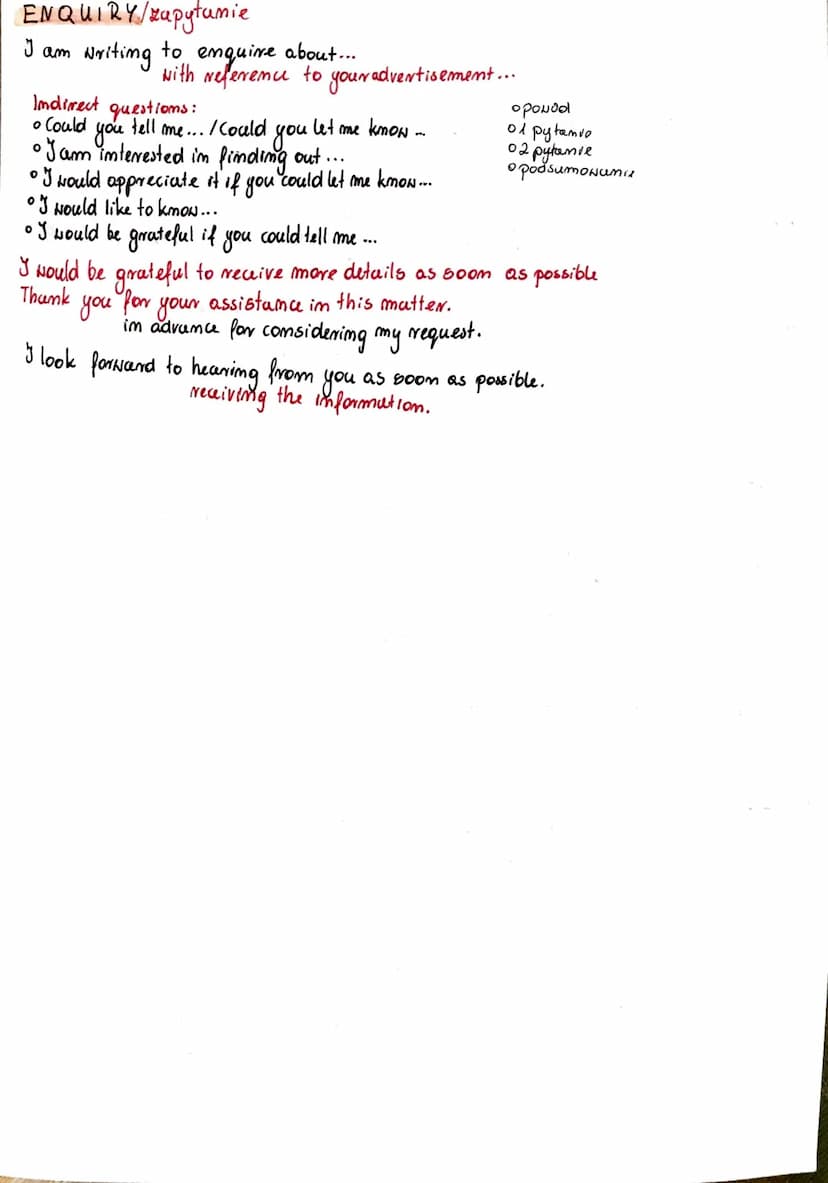 ENQUIRY/zapytanie
I am writing to enquire about...
with reference to your advertisement...
Indirect questions:
• Could you tell me... / Could you let me know...
• I am interested in finding out...
• I would appreciate it if you could let me know...
• I would like to know...
• I would be grateful if you could tell me...
• powód
• 1 pytanie
• 2 pytanie
• podsumowanie
I would be grateful to receive more details as soon as possible
Thank you for your assistance in this matter.
in advance for considering my request.
I look forward to hearing from you as soon as possible.
receiving the information.